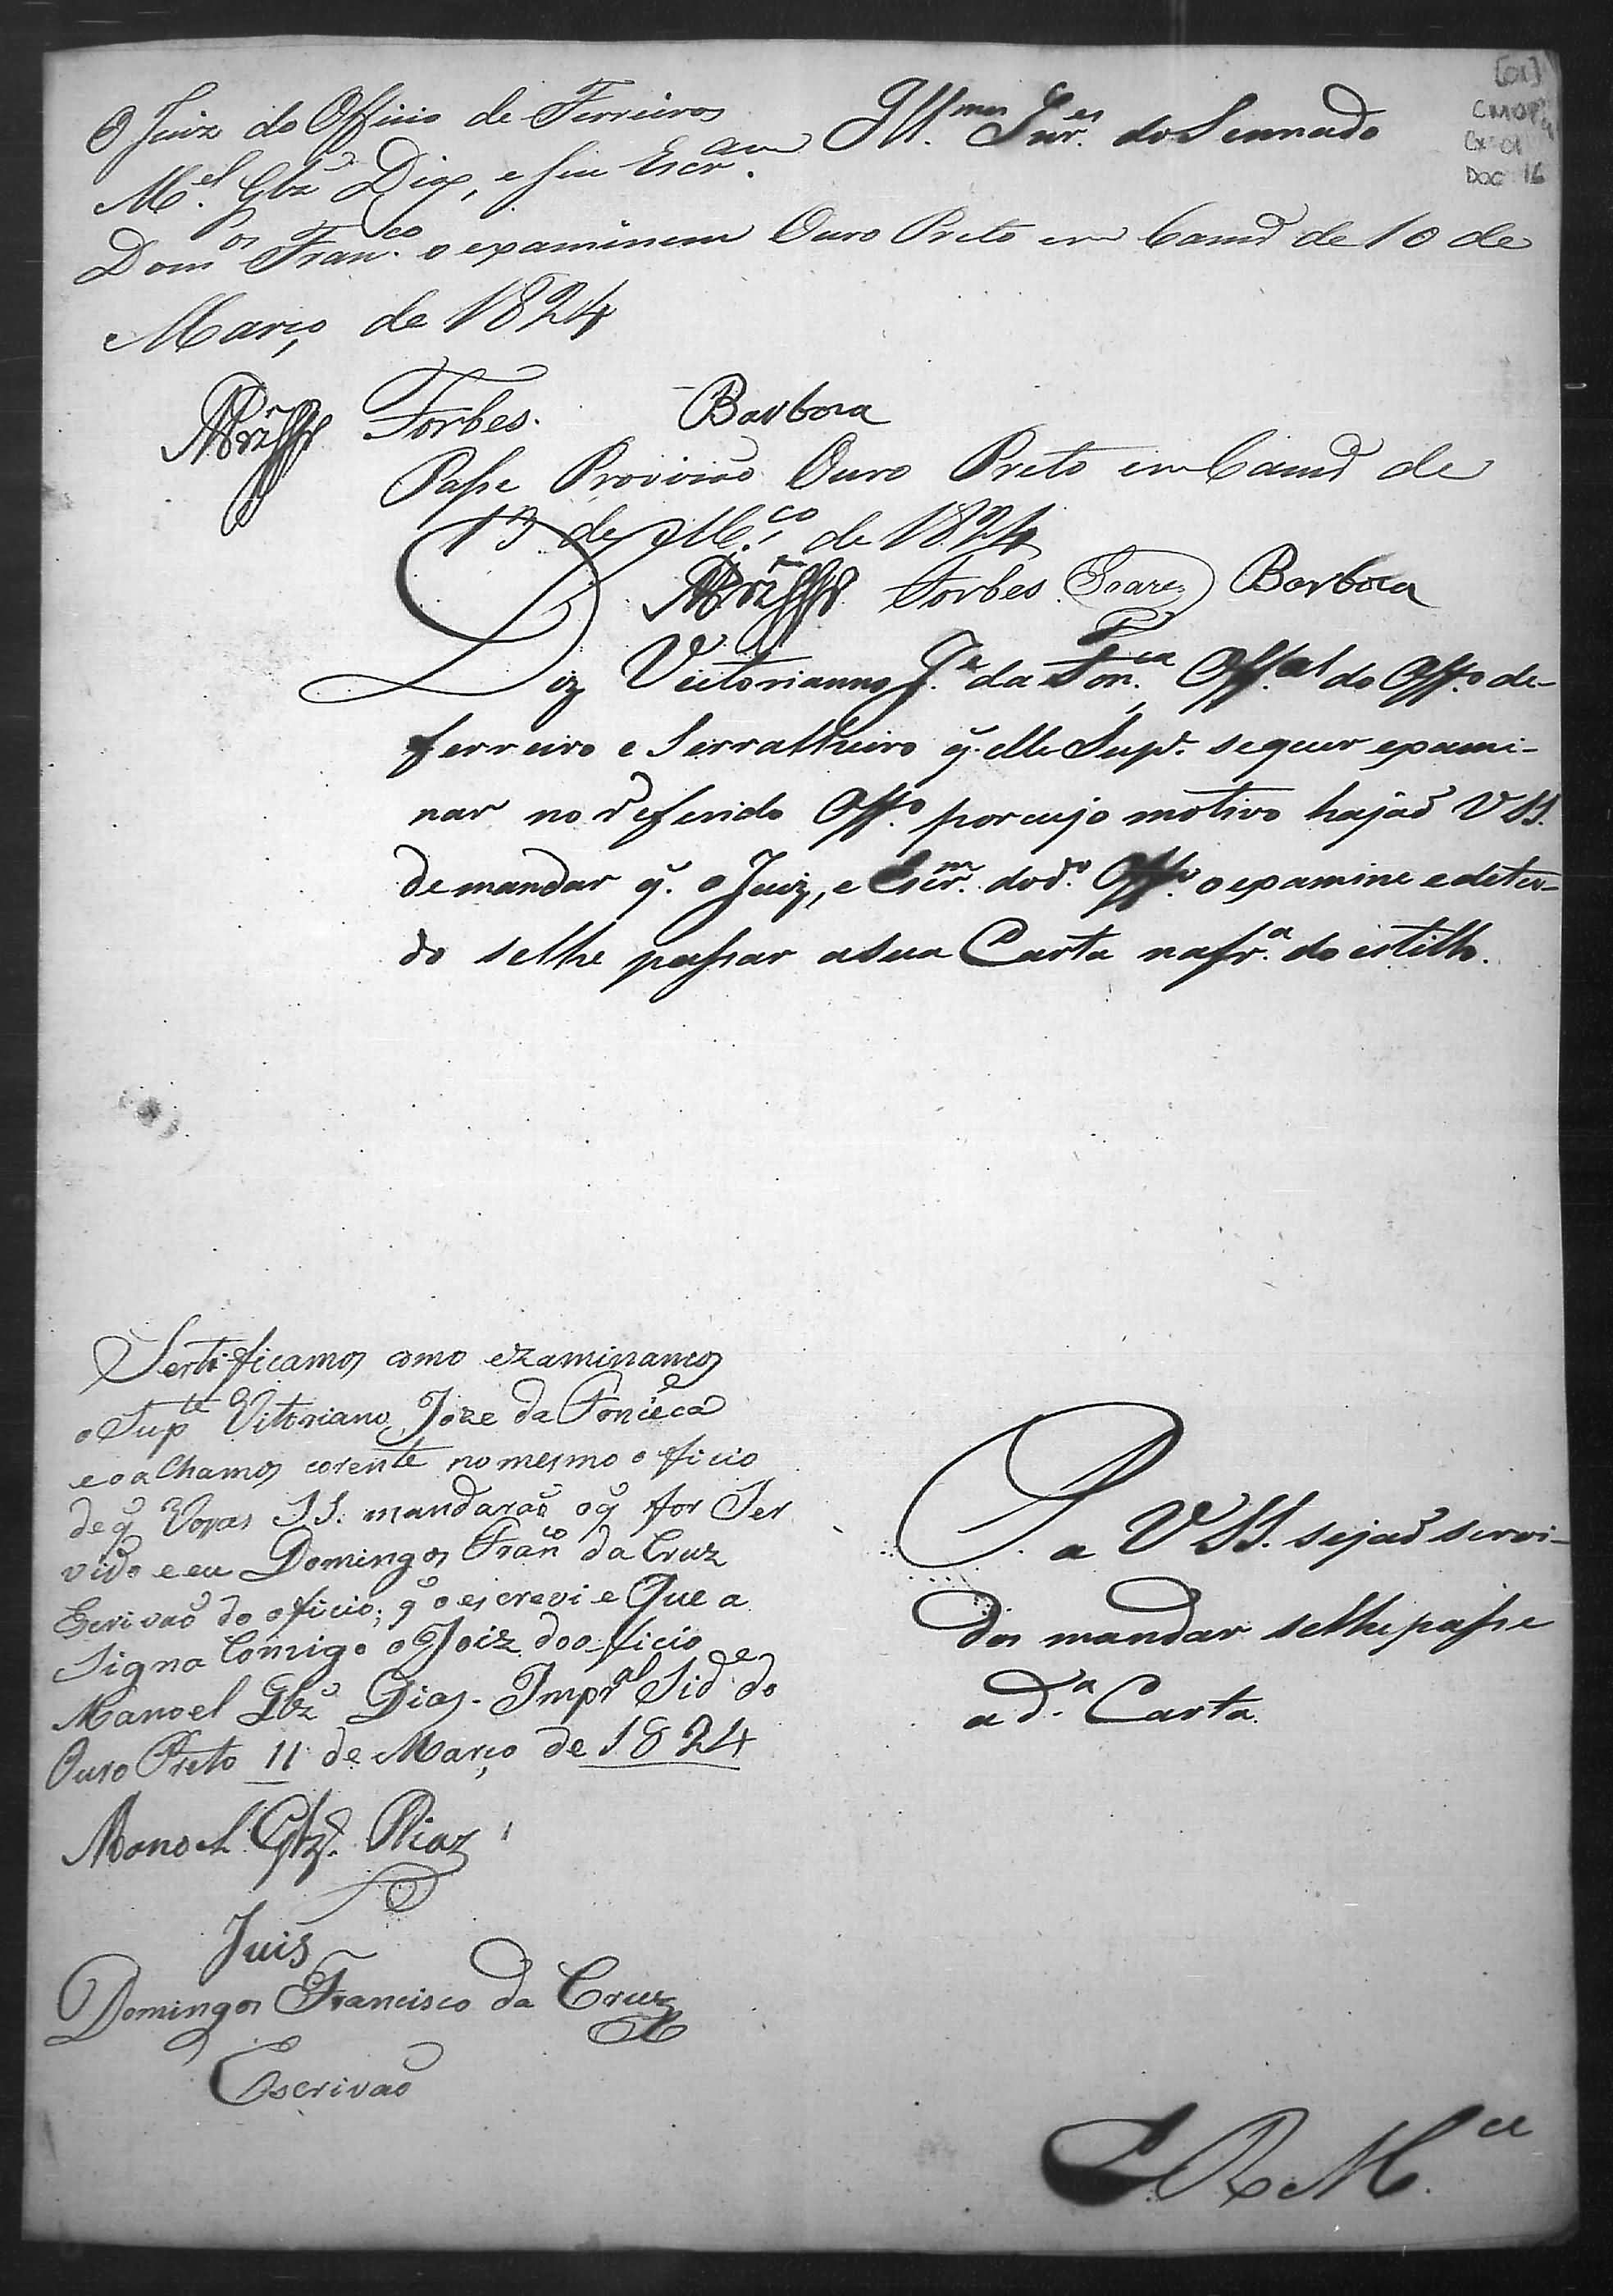 [01]
CMOP
Cx 01
DOC 16
Ill.mos Snr.es do Sennado
O Juiz do Officio de Ferreiros
M.el Glz Dias, e seu Escr.am
Dom.os Fran.co o examinem Ouro Preto em Cam.ª de 10 de
Março de 1824
Forbes. Barboza
Passe Provizão Ouro Preto em Cam.ª de
13 de M.ço de 1824
Forbes Soares Barboza
Diz Victorianno J.e da Fon.ca Off.al do Off.o de
ferreiro e Serralheiro q. elle Sup.e se quer exami-
nar no referido Off.o por cujo motivo hajaõ VSS.
de mandar q. o Juiz, e Escr.m do d.o Off.o o examine e deter-
do selhe passar a sua Carta na fr.a do estillo.
P. a VSS. sejaõ servi-
dos mandar selhe passe
a d.a Carta.
E R M.ce
Sertificamos como ezaminamos
o Sup.te Vitoriano Joze da Fonceca
e o alhamos corente no mesmo oficio
de q̃ Voças SS. mandaraõ o q̃ for Ser
vido e eu Domingos Fran.co da Cruz
Escrivaõ do oficio, q̃ o escrevi e Que a
Signa Comigo o Joiz do oficio
Manoel Glz Dias. Imp.al Sid.e do
Ouro Preto 11 de Março de 1824
Manoel Glz. Diaz
Juis
Domingos Francisco da Cruz
Escrivaõ